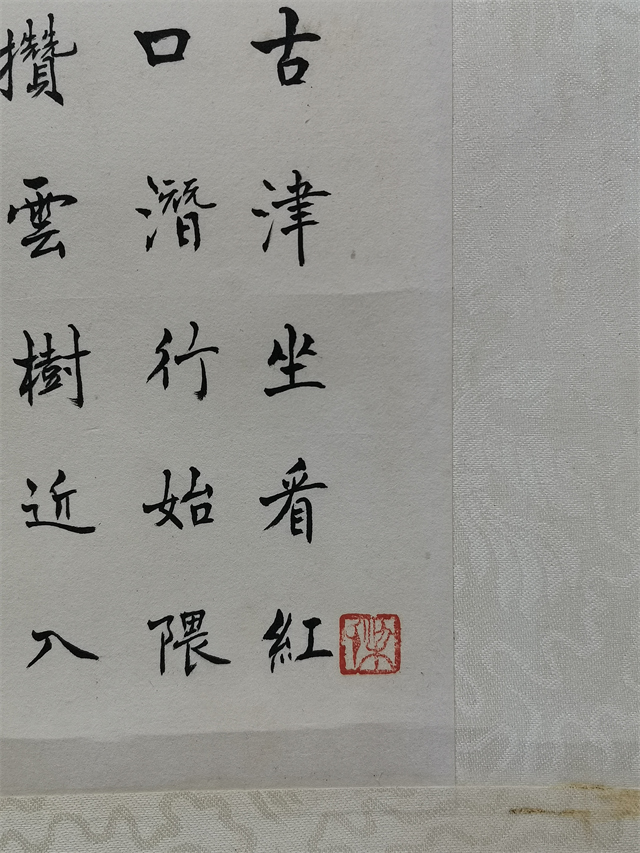 古津坐看紅
口潛行始隈
攢雲樹近入